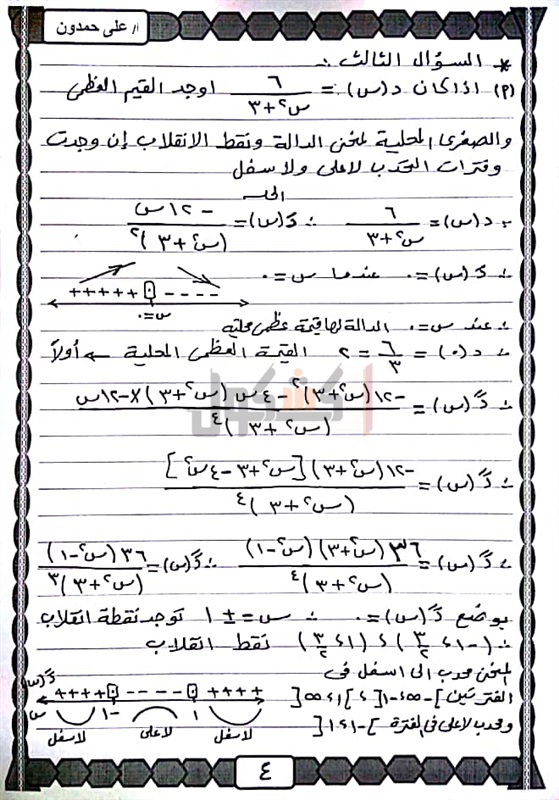 أ/ على حمدون
* السؤال الثالث :
(٩) اذا كان د(س) = ٦/(س²+٣) اوجد القيم العظمى
والصغرى المحلية لمنحن الدالة ونقط الانقلاب إن وجدت
وفترات التحدب لاعلى ولاسفل
الحل
∵ د(س) = ٦/(س²+٣) ∴ دَ(س) = -١٢س/(س²+٣)²
∴ دَ(س) = ٠ عندما س = ٠
+++++ ٠ ----
س=٠
∴ عند س = ٠ الدالة لها قيمة عظمى محلية
∴ د(٠) = ٦/٣ = ٢ القيمة العظمى المحلية ← أولاً
∴ دً(س) = (-١٢(س²+٣)² - ٤س(س²+٣)×-١٢س)/(س²+٣)⁴
أ كشكول
∴ دً(س) = (-١٢(س²+٣)[س²+٣-٤س²])/(س²+٣)⁴
∴ دً(س) = (٣٦(س²+٣)(س²-١))/(س²+٣)⁴ ∴ دً(س) = (٣٦(س²-١))/(س²+٣)³
بوضع دً(س) = ٠ ∴ س = ±١ توجد نقطة انقلاب
∴ (-١، ٣/٢) ، (١، ٣/٢) نقط انقلاب
المنحن محدب الى اسفل فى
الفترتين ]-∞، -١[ ، ]١، ∞[
ومحدب لاعلى فى الفترة ]-١، ١[
دً(س)
++++ ٠ ---- ٠ ++++
س -١ ١
لاسفل لاعلى لاسفل
٤